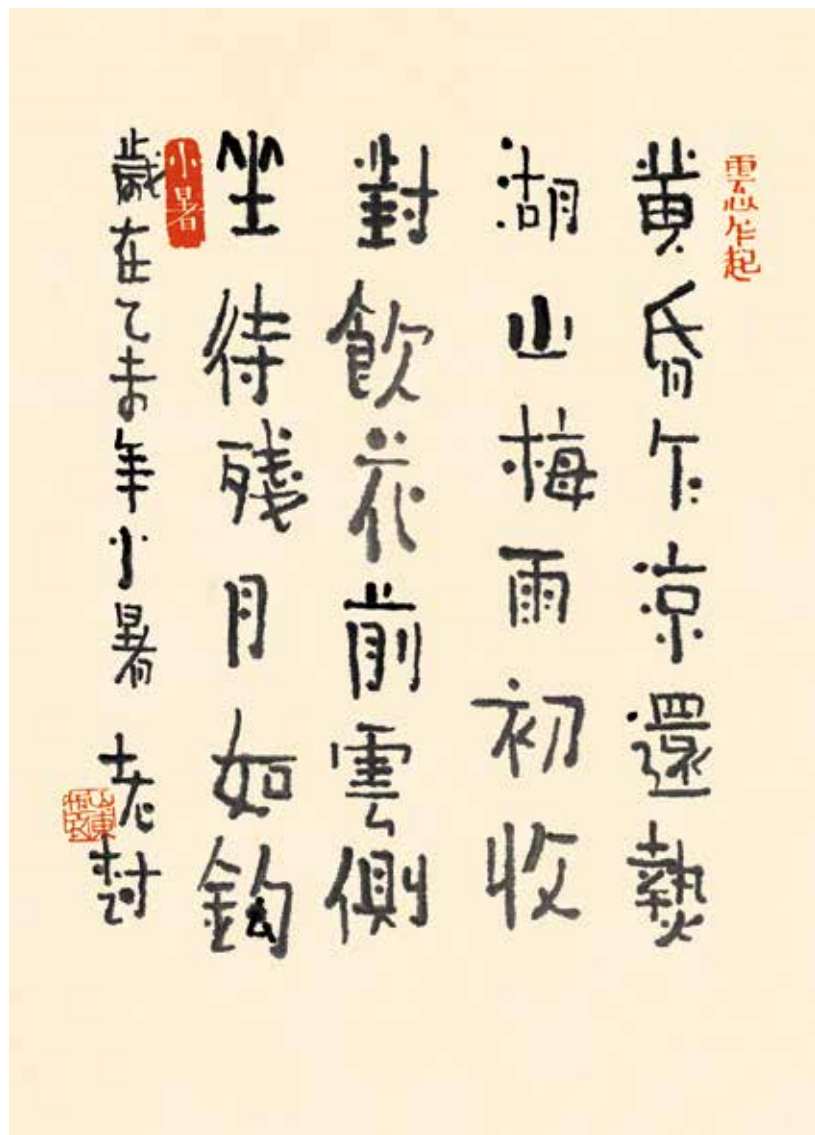 雲心乍起
黄昏乍涼還熱
湖山梅雨初收
對飲花前雲側
坐待殘月如鈎
小暑
歲在乙未年小暑 老树